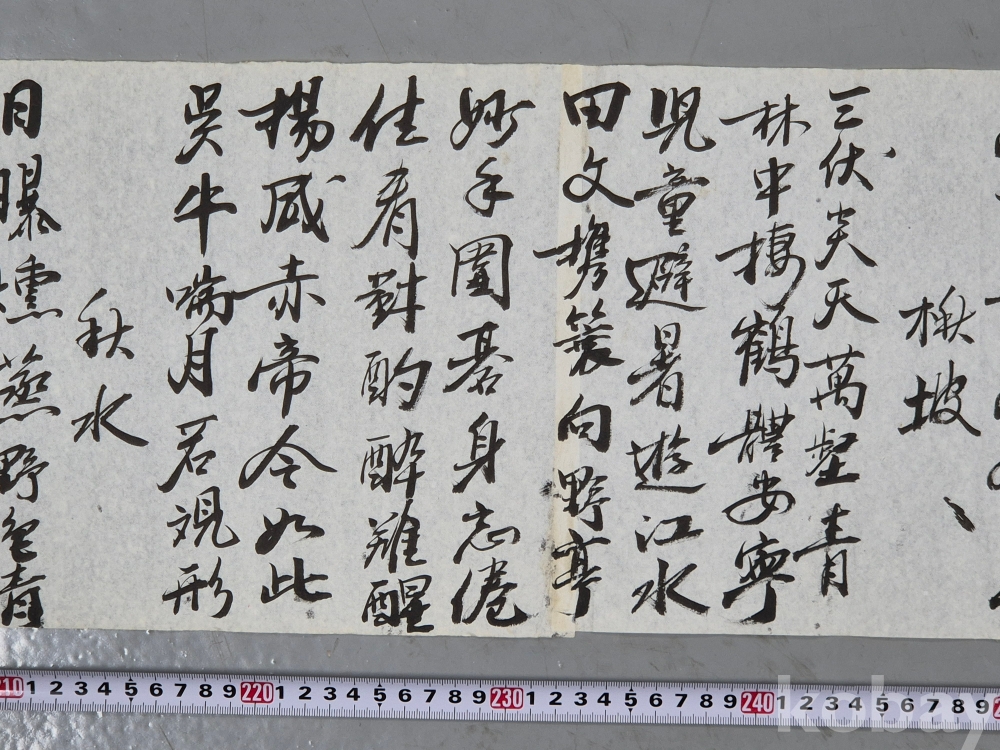 楸坡
三伏炎天萬壑青
林中棲鶴體安寧
児童避暑遊江水
田文携簑向野亭
妙手圍碁身忘倦
佳肴對酌醉難醒
揚威赤帝今如此
吳牛喘月若現形
秋水
日曝燻蒸野色青
210 1 2 3 4 5 6 7 8 9 220 1 2 3 4 5 6 7 8 9 230 1 2 3 4 5 6 7 8 9 240 1 2 3 4 5 6 7 8 9
kobay